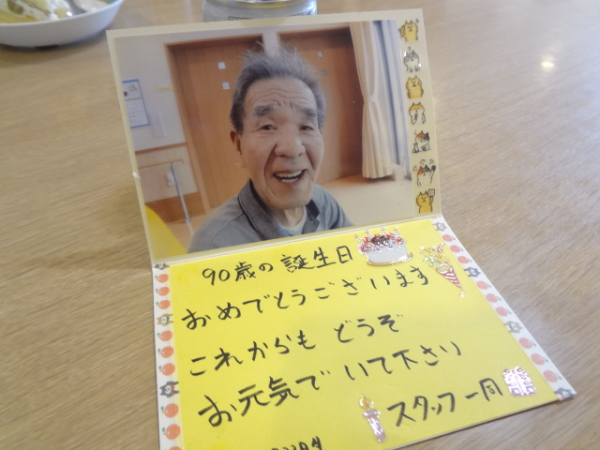 90歳の誕生日
おめでとうございます
これからも どうぞ
お元気で いて下さり
スタッフ一同